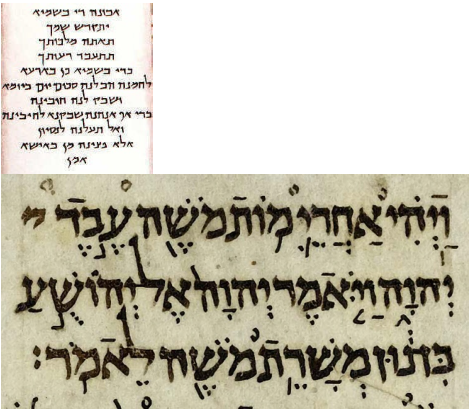 אבונה די בשמיא
יתקדש שמך
תאתה מלכותך
תתעבד רעותך
כדי בשמיא כן בארעא
לחמנה הב לנה סכום יום ביומא
ושבק לנה חובינה
כדי אף אנחנה שבקנא לחייבינה
ואל תעלנה לנסיון
אלא פצינה מן באישא
אמן
וַיְהִי אַחֲרֵי מוֹת מֹשֶׁה עֶבֶד
יְהוָה וַיֹּאמֶר יְהוָה אֶל יְהוֹשֻׁעַ
בִּן נוּן מְשָׁרֵת מֹשֶׁה לֵאמֹר׃